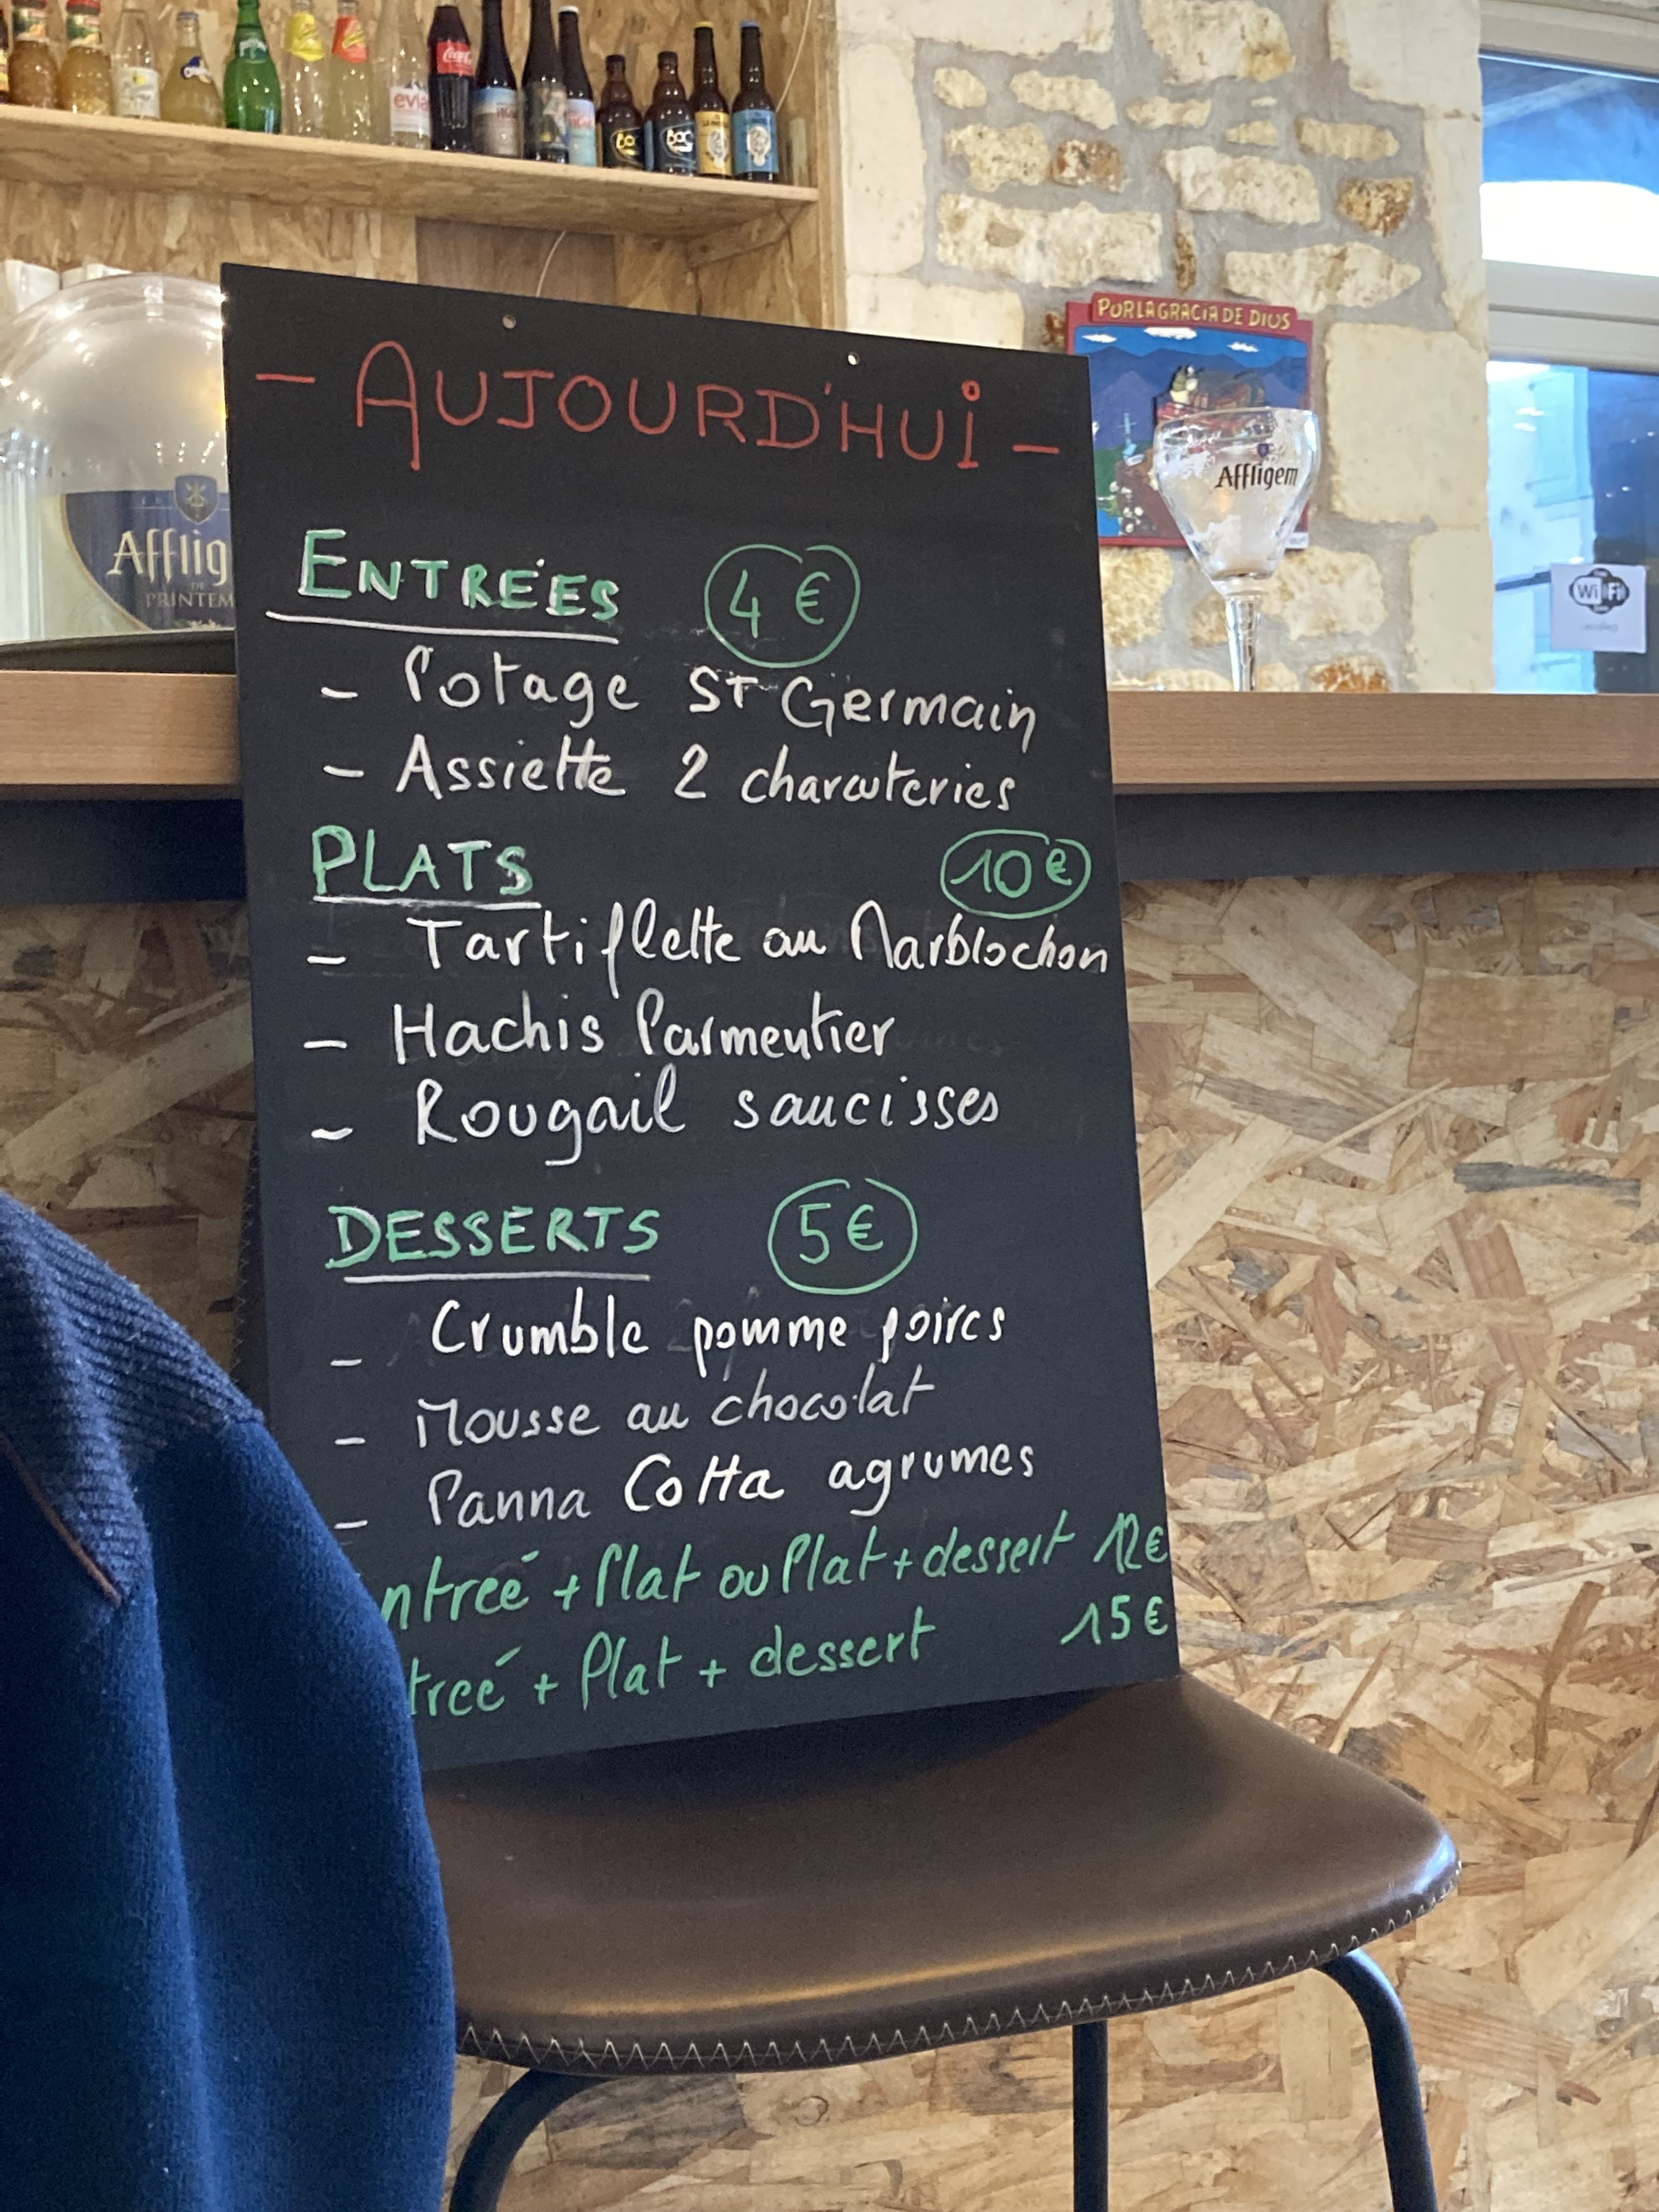 evian
PORLAGRACIA DE DIOS
Affligem
Afflig
DE
PRINTEM
Wi Fi
- AUJOURD'HUI -
ENTREÉS 4 €
- Potage ST Germain
- Assiette 2 charcuteries
PLATS 10 €
- Tartiflette au Marblochon
- Hachis Parmentier
- Rougail saucisses
DESSERTS 5 €
- Crumble pomme poires
- Mousse au chocolat
- Panna Cotta agrumes
ntreé + Plat ou Plat + dessert 12 €
treé + Plat + dessert 15 €